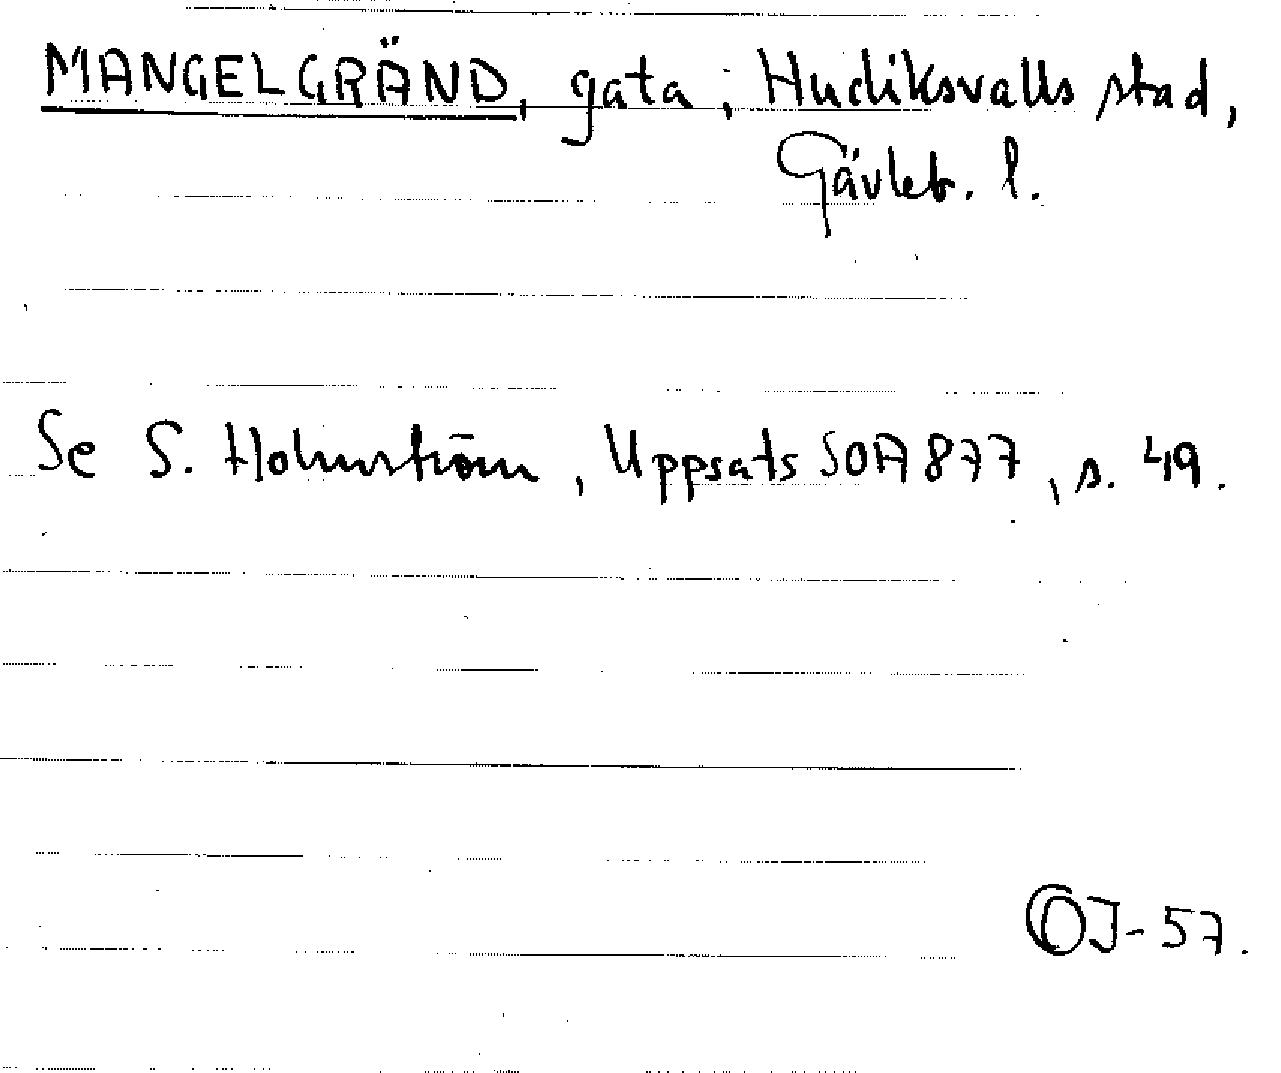 MANGELGRÄND, gata, Hudiksvalls stad,
Gävleb. l.
Se S. Holmström, Uppsats SOA 877, s. 49.
COJ-57.